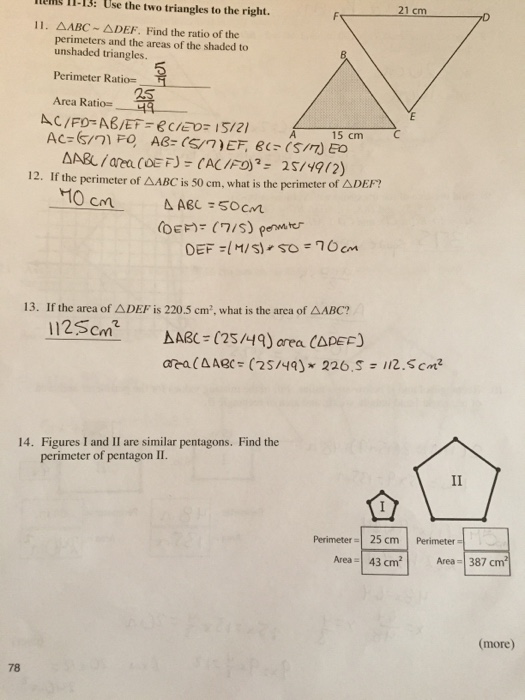 Items 11-13: Use the two triangles to the right.
11. △ABC ~ △DEF. Find the ratio of the
perimeters and the areas of the shaded to
unshaded triangles.
Perimeter Ratio= 5/7
Area Ratio= 25/49
AC/FD=AB/EF=BC/ED=15/21
AC=(5/7)FD, AB=(5/7)EF, BC=(5/7)ED
△ABC/area(DEF)=(AC/FD)²=25/49(2)
F 21 cm D
B
E
A 15 cm C
12. If the perimeter of △ABC is 50 cm, what is the perimeter of △DEF?
70 cm △ABC=50cm
(DEF)=(7/5) permiter
DEF=(7/5)*50=70cm
13. If the area of △DEF is 220.5 cm², what is the area of △ABC?
112.5cm² △ABC=(25/49)area(△DEF)
area(△ABC=(25/49)*220.5=112.5cm²
14. Figures I and II are similar pentagons. Find the
perimeter of pentagon II.
I
II
Perimeter= 25 cm Perimeter=
Area= 43 cm² Area= 387 cm²
(more)
78